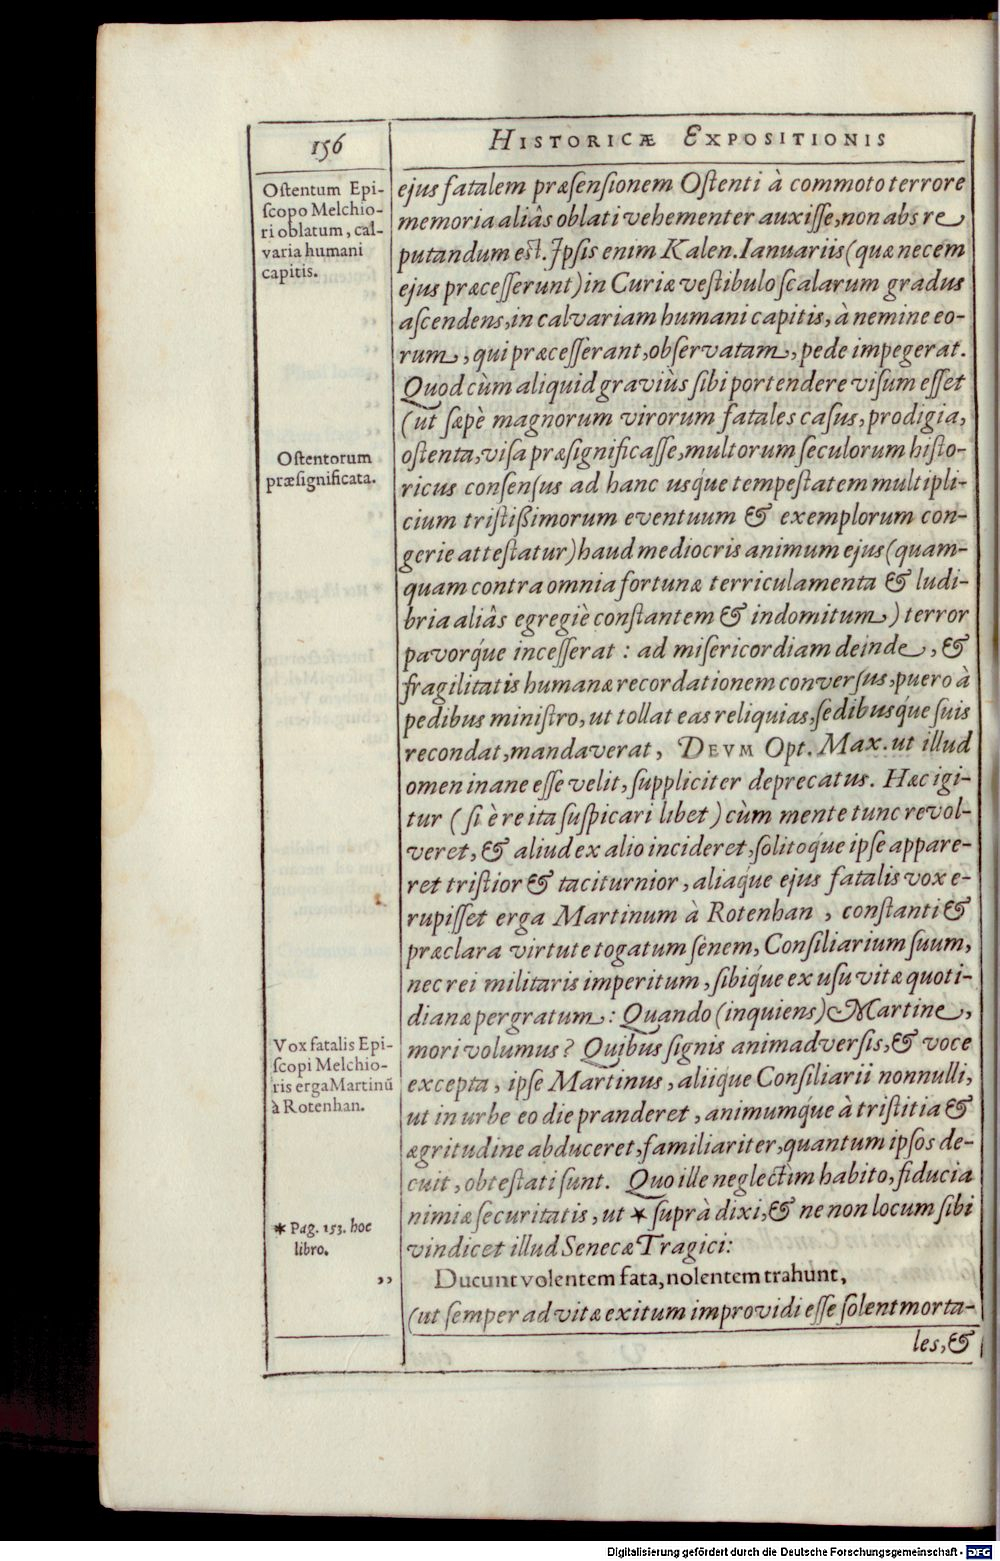 156
HISTORICÆ EXPOSITIONIS
Ostentum Epi-
scopo Melchio-
ri oblatum, cal-
varia humani
capitis.
ejus fatalem præsensionem Ostenti à commoto terrore
memoria aliâs oblati vehementer auxisse, non abs re
putandum est. Ipsis enim Kalen. Ianuariis (quæ necem
ejus præcesserunt) in Curiæ vestibulo scalarum gradus
ascendens, in calvariam humani capitis, à nemine eo-
rum, qui præcesserant, observatam, pede impegerat.
Quod cùm aliquid graviùs sibi portendere visum esset
(ut sæpè magnorum virorum fatales casus, prodigia,
Ostentorum
præsignificata.
ostenta, visa præsignificasse, multorum seculorum histo-
ricus consensus ad hanc usq́ue tempestatem multipli-
cium tristißimorum eventuum & exemplorum con-
gerie attestatur) haud mediocris animum ejus (quam-
quam contra omnia fortunæ terriculamenta & ludi-
bria aliâs egregiè constantem & indomitum) terror
pavorq́ue incesserat: ad misericordiam deinde, &
fragilitatis humanæ recordationem conversus, puero à
pedibus ministro, ut tollat eas reliquias, sedibusq́ue suis
recondat, mandaverat, DEVM Opt. Max. ut illud
omen inane esse velit, suppliciter deprecatus. Hæc igi-
tur (si è re ita suspicari libet) cùm mente tunc revol-
veret, & aliud ex alio incideret, solitoq́ue ipse appare-
ret tristior & taciturnior, aliaq́ue ejus fatalis vox e-
rupisset erga Martinum à Rotenhan, constanti &
præclara virtute togatum senem, Consiliarium suum,
nec rei militaris imperitum, sibiq́ue ex usu vitæ quoti-
dianæ pergratum: Quando (inquiens) Martine,
Vox fatalis Epi-
scopi Melchio-
ris erga Martinū
à Rotenhan.
mori volumus? Quibus signis animadversis, & voce
excepta, ipse Martinus, aliique Consiliarii nonnulli,
ut in urbe eo die pranderet, animumq́ue à tristitia &
ægritudine abduceret, familiariter, quantum ipsos de-
cuit, obtestati sunt. Quo ille neglectim habito, fiducia
nimiæ securitatis, ut * suprà dixi, & ne non locum sibi
* Pag. 153. hoc
libro.
vindicet illud Senecæ Tragici:
,, Ducunt volentem fata, nolentem trahunt,
(ut semper ad vitæ exitum improvidi esse solent morta-
les, &
Digitalisierung gefördert durch die Deutsche Forschungsgemeinschaft - DFG